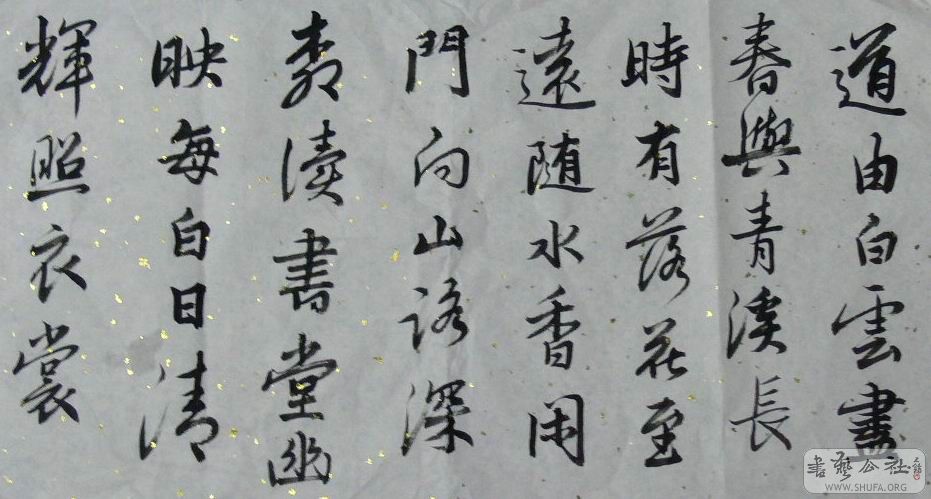 道由白雲盡
春與青溪長
時有落花至
遠随水香閑
門向山路深
柳讀書堂幽
映每白日清
輝照衣裳
書藝公社
WWW.SHUFA.ORG